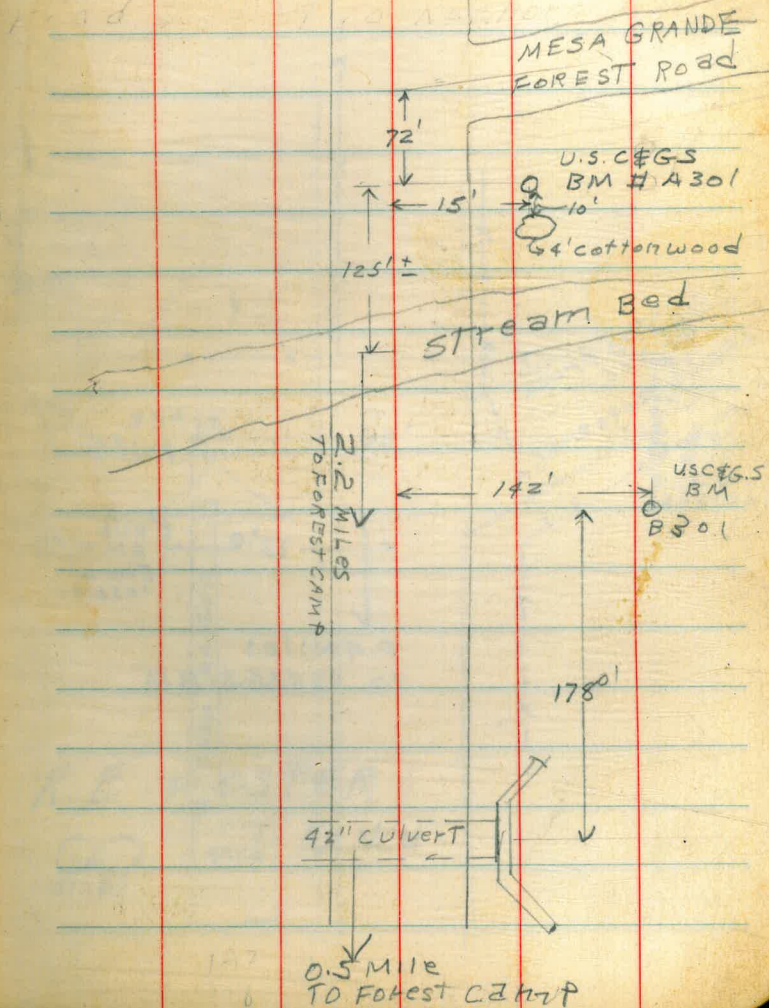 MESA GRANDE
FOREST Road
72'
U.S. C&GS
BM # A301
15'
10'
4' cottonwood
125' ±
Stream Bed
2.2 MILES
TO FOREST CAMP
142'
USC&G.S
BM
B301
178°'
42" CULVERT
0.5 Mile
TO Forest CAMP